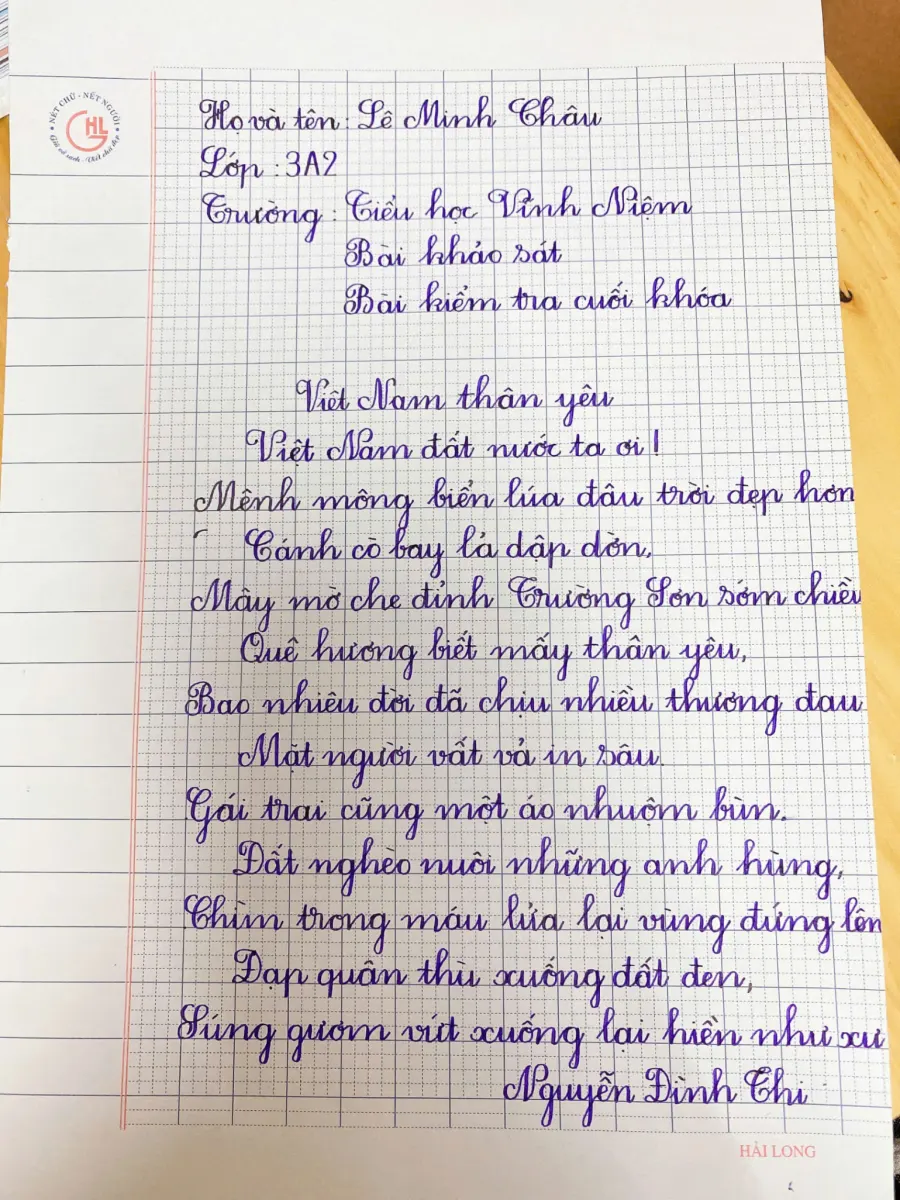 NÉT CHỮ - NẾT NGƯỜI
HL
Giữ vở sạch - Viết chữ đẹp
Họ và tên: Lê Minh Châu
Lớp: 3A2
Trường: Tiểu học Vĩnh Niệm
Bài khảo sát
Bài kiểm tra cuối khóa
Việt Nam thân yêu
Việt Nam đất nước ta ơi!
Mênh mông biển lúa đâu trời đẹp hơn
Cánh cò bay lả dập dờn,
Mây mờ che đỉnh Trường Sơn sớm chiều
Quê hương biết mấy thân yêu,
Bao nhiêu đời đã chịu nhiều thương đau
Mặt người vất vả in sâu.
Gái trai cũng một áo nhuộm bùn.
Đất nghèo nuôi những anh hùng,
Chìm trong máu lửa lại vùng đứng lên
Đạp quân thù xuống đất đen,
Súng gươm vứt xuống lại hiền như xư
Nguyễn Đình Thi
HẢI LONG